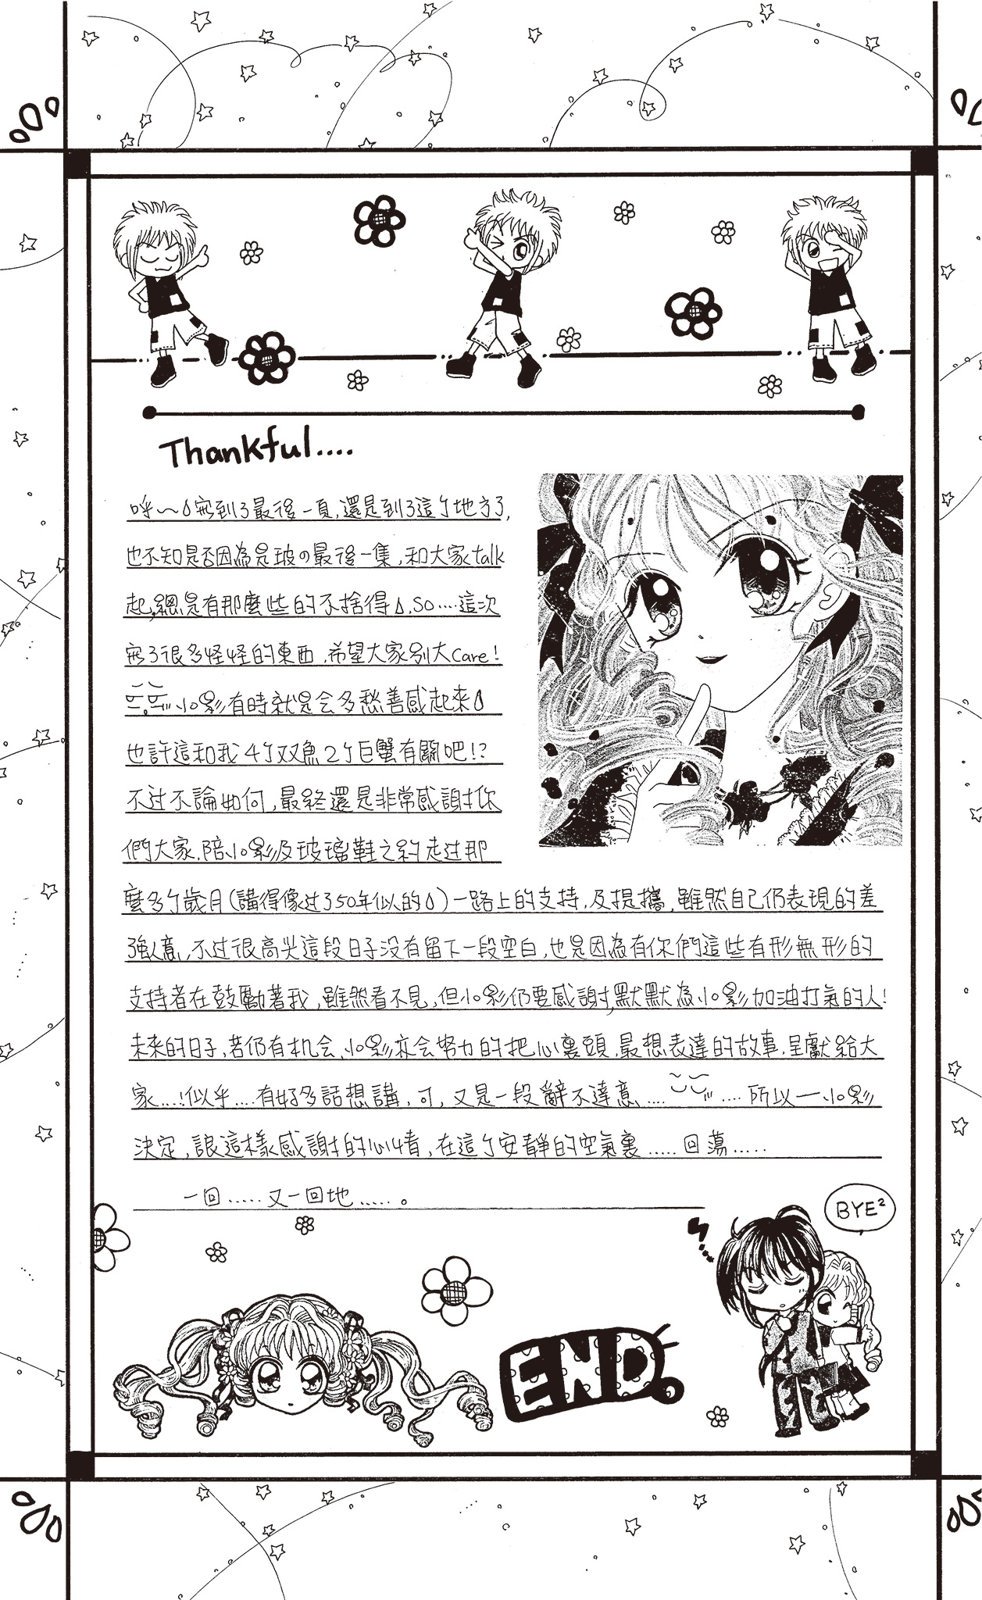 Thankful....
呼～💧寫到了最後一頁,還是到了這个地方了,
也不知是否因為是玻の最後一集,和大家talk
起,總是有那麼些的不捨得💧.So....這次
寫了很多怪怪的東西,希望大家別太Care!
小影有時就是会多愁善感起來💧
也許這和我4个双魚2个巨蟹有關吧!?
不过不論如何,最終還是非常感謝你
們大家.陪小影及玻璃鞋之約走过那
麼多个歲月(講得像过了350年似的💧)一路上的支持,及提攜,雖然自己仍表現的差
強人意,不过很高兴這段日子没有留下一段空白,也是因為有你們這些有形無形的
支持者在鼓勵著我,雖然看不見,但小影仍要感謝,默默為小影加油打氣的人!
未來的日子,若仍有机会,小影亦会努力的把心裏頭,最想表達的故事,呈獻給大
家....!似乎....有好多話想講,可,又是一段辭不達意........所以一小影
決定,讓這樣感謝的心情,在這个安靜的空氣裏.....回蕩.....
一回.....又一回地.....。
BYE²
END.